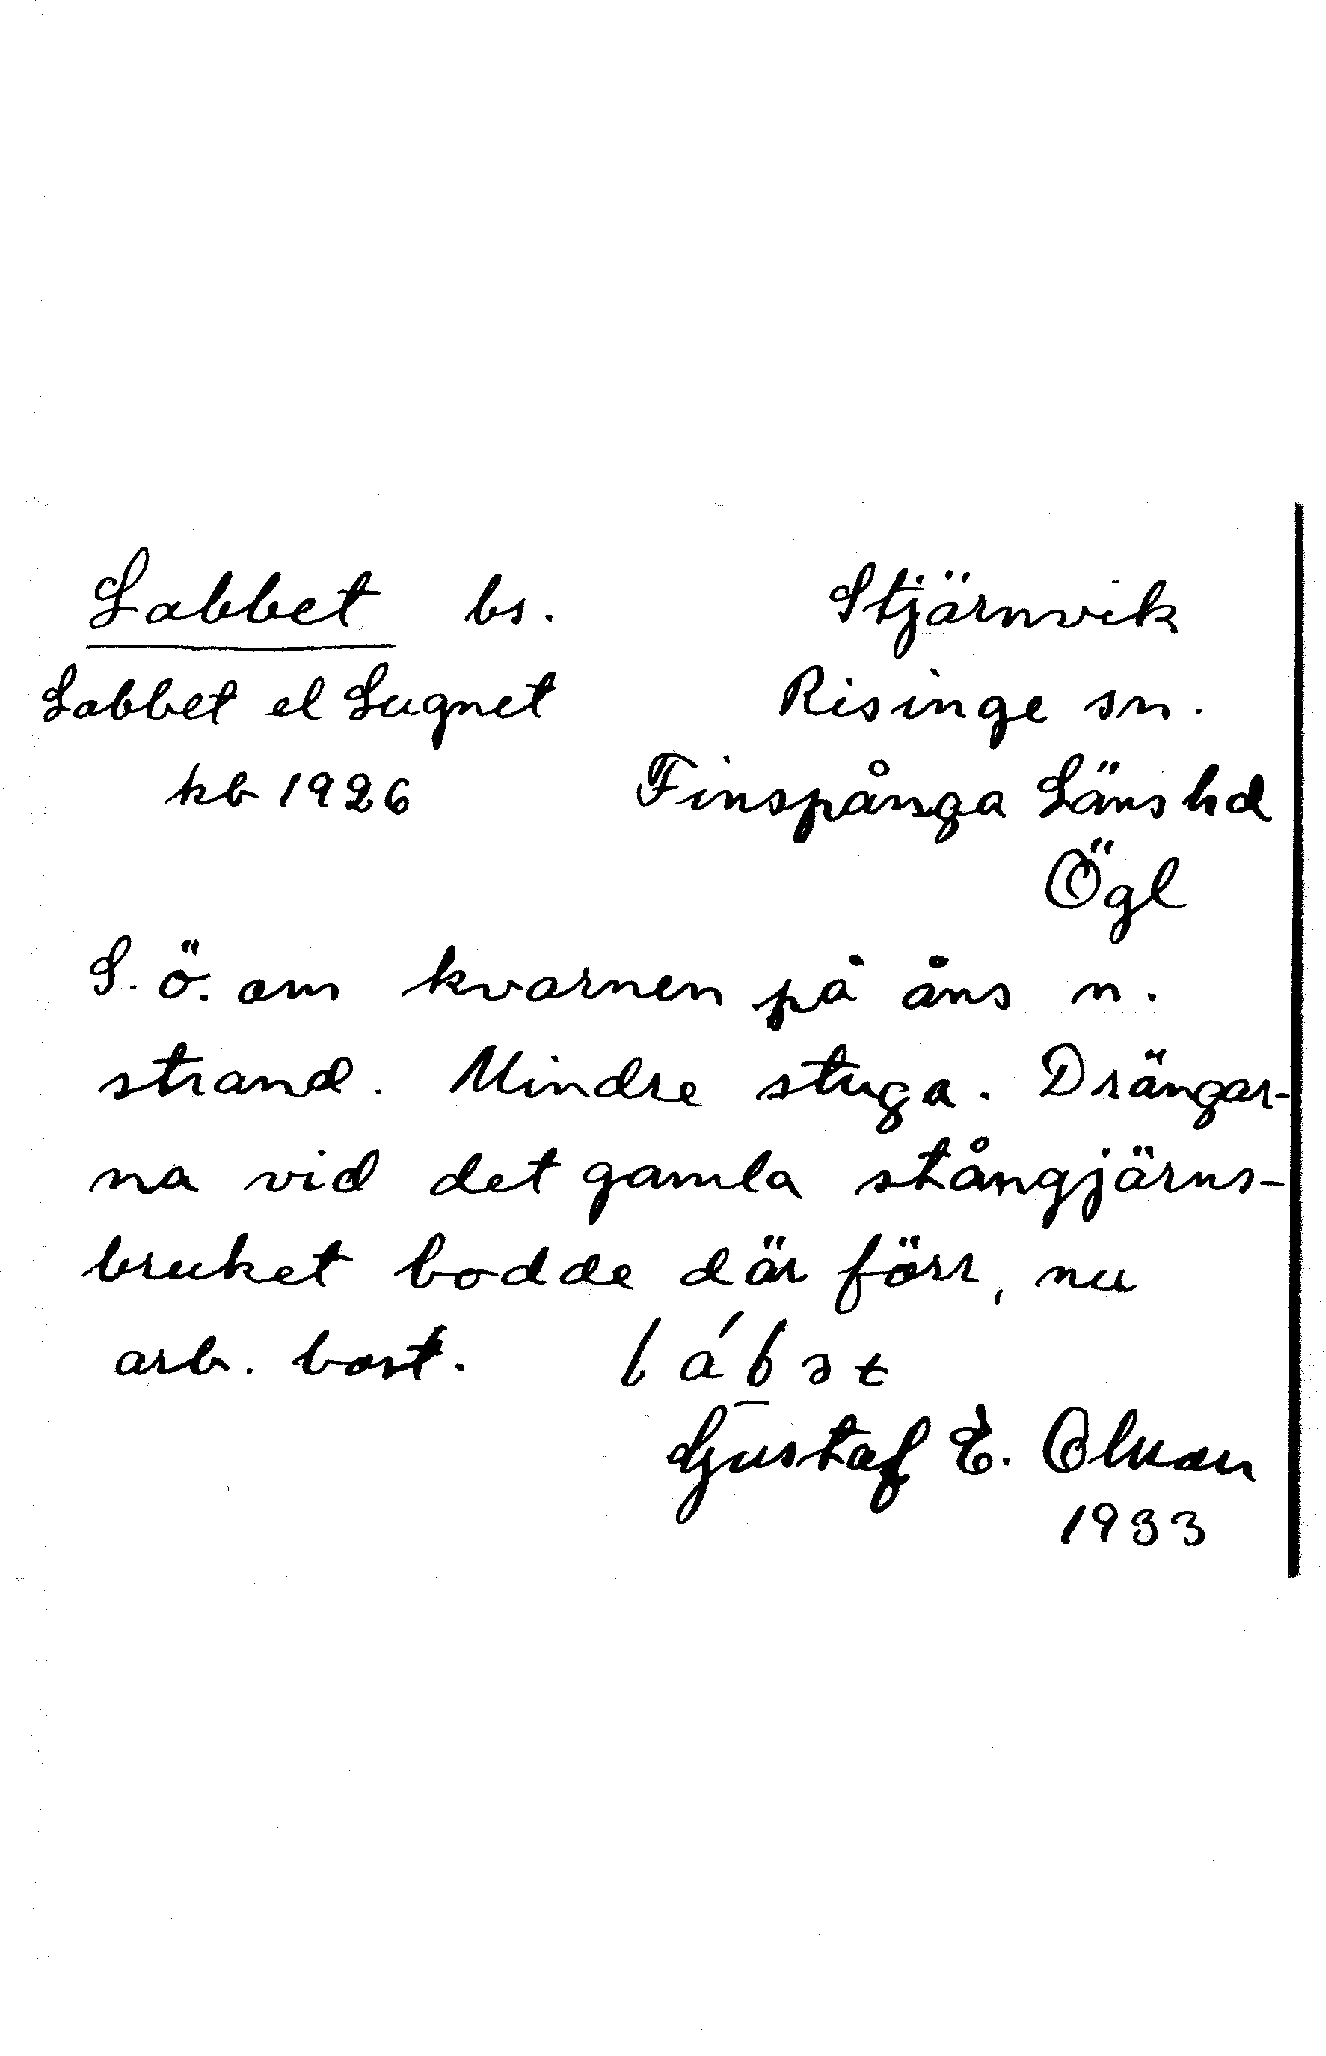 Labbet bs. Stjärnvik
Labbet el Lugnet Risinge sn.
kb 1926 Finspånga Läns hd
Ögl
S. ö. om kvarnen på åns n.
strand. Mindre stuga. Drängar-
na vid det gamla stångjärns-
bruket bodde där förr, nu
arb. bost. lábət
Gustaf E. Olsson
1933